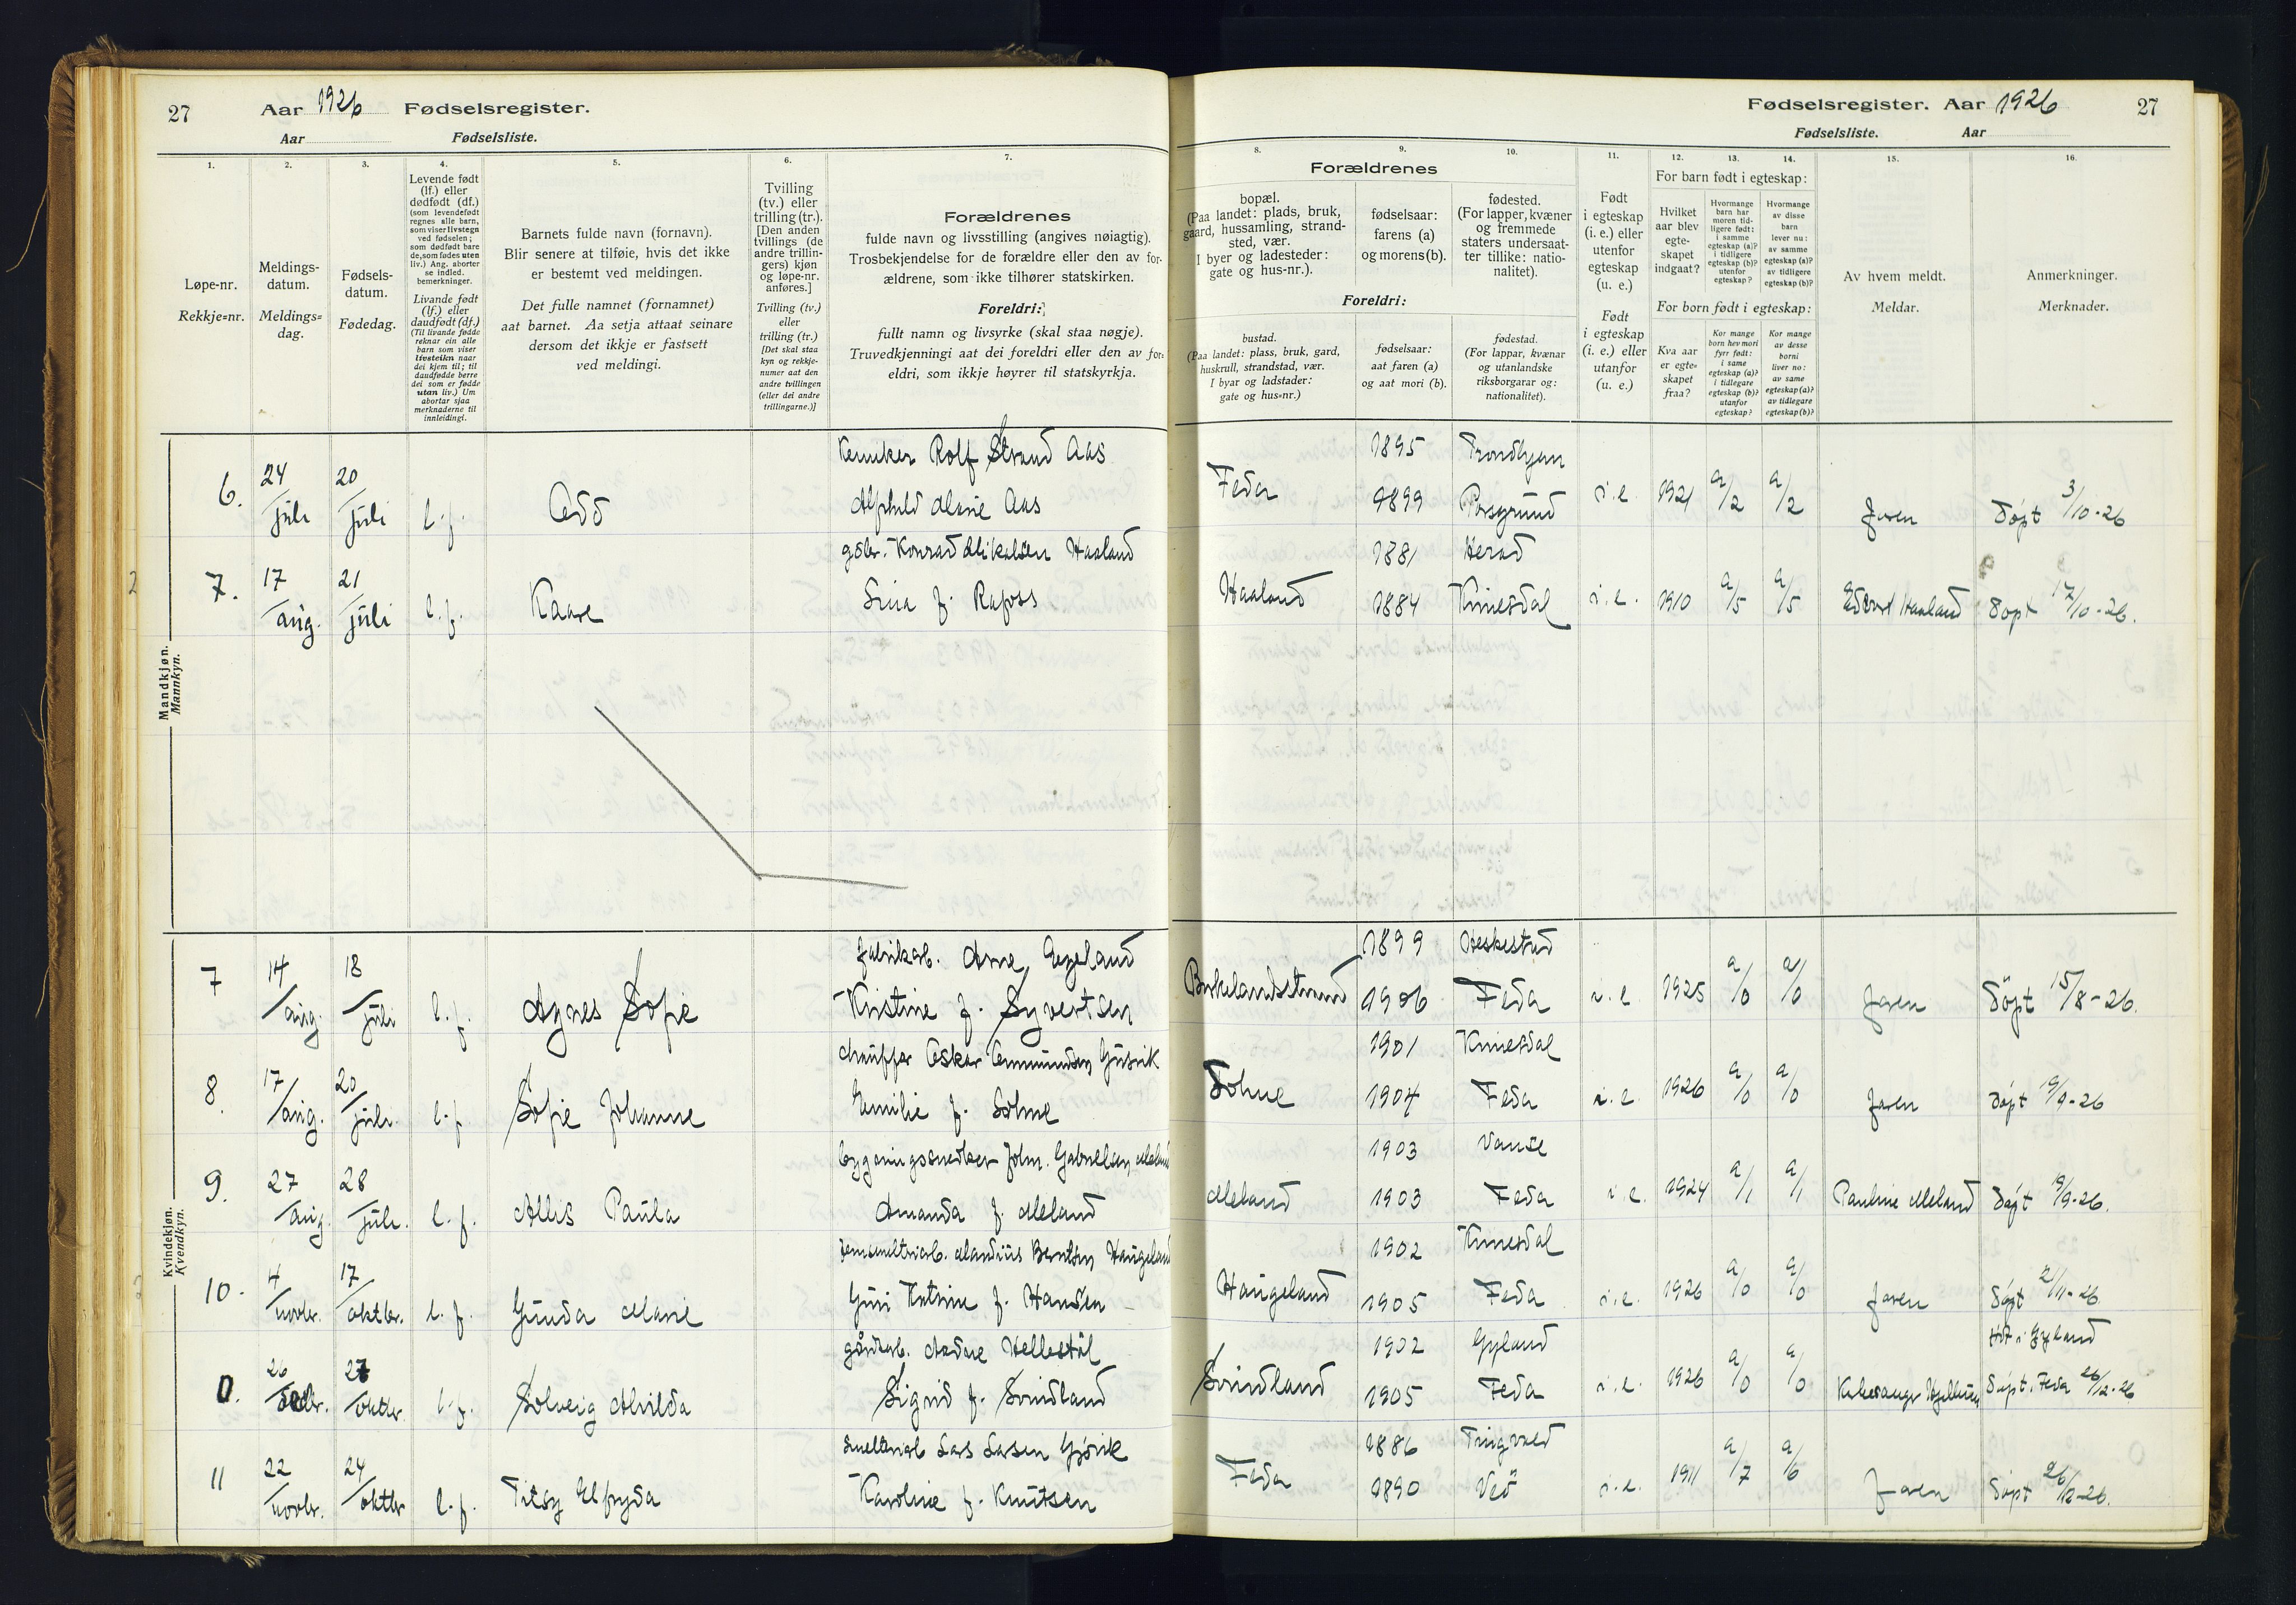 27 Aar 1926 Fødselsregister.
Aar Fødselsliste.
1. 2. 3. 4. 5. 6. 7.
Løpe-nr.
Rekkje=nr.
Meldings-
datum.
Meldings=
dag.
Fødsels-
datum.
Fødedag.
Levende født
(lf.) eller
dødfødt (df.)
(som levendefødt
regnes alle barn,
som viser livstegn
ved fødselen;
som dødfødt bare
de, som fødes uten
liv.) Ang. aborter
se indled.
bemerkninger.
Livande født
(lf.) eller
daudfødt (df.)
(Til livande fødde
reknar ein alle
barn som viser
livsteikn naar
dei kjem til; til
daudfødde berre
dei som er fødde
utan liv.) Um
abortar sjaa
merknaderne til
innleidingi.
Barnets fulde navn (fornavn).
Blir senere at tilføie, hvis det ikke
er bestemt ved meldingen.
Det fulle namnet (fornamnet)
aat barnet. Aa setja attaat seinare
dersom det ikkje er fastsett
ved meldingi.
Tvilling
(tv.) eller
trilling (tr.).
[Den anden
tvillings (de
andre trillin-
gers) kjøn
og løpe-nr.
anføres.]
Tvilling (tv.)
eller
trilling (tr.)
[Det skal staa
kyn og rekkje-
numer aat den
andre tvillingen
(eller dei andre
trillingarne.)]
Forældrenes
fulde navn og livsstilling (angives nøiagtig).
Trosbekjendelse for de forældre eller den av for-
ældrene, som ikke tilhører statskirken.
Foreldri:
fullt namn og livsyrke (skal staa nøgje).
Truvedkjenningi aat dei foreldri eller den av for-
eldri, som ikkje høyrer til statskyrkja.
Mandkjøn.
Mannkyn.
6. 24/juli 20/juli l.f. Odd
Kemiker Rolf Strand Aas
Alfhild Marie Aas
7. 17/aug. 21/juli l.f. Kaare
gdbr. Konrad Mikalsen Haaland
Sina f. Rafoss
Kvindekjøn.
Kvendkyn.
7 14/aug. 18/juli l.f. Agnes Sofie
fabrikarb. Arne Egeland
Kristine f. Syvertsen
8. 17/aug. 20/juli l.f. Sofie Johanne
chauffør Oskar Ommundsen Gusvik
Emilie f. Solme
9. 27/aug. 28/juli. l.f. Allis Paula
Amanda f. Meland
10. 4/novbr. 17/oktbr. l.f. Gunda Marie
Guri Katrine f. Hansen
0. 26/decbr. 27/oktbr. l.f. Solveig Alvilda
gårdarb. Aadne Hellestøl
Sigrid f. Svindland
11 22/novbr. 24/oktbr l.f. Titsy Elfryda
smelteriarb Lars Larsen Gjørvik
Karoline f. Knutsen
Fødselsregister. Aar 1926 27
Fødselsliste. Aar
8. 9. 10. 11. 12. 13. 14. 15. 16.
Forældrenes
bopæl.
(Paa landet: plads, bruk,
gaard, hussamling, strand-
sted, vær.
I byer og ladesteder:
gate og hus-nr.).
fødselsaar:
farens (a)
og morens (b).
fødested.
(For lapper, kvæner
og fremmede
staters undersaat-
ter tillike: natio-
nalitet).
Foreldri:
bustad.
(Paa landet: plass, bruk, gard,
huskrull, strandstad, vær.
I byar og ladstader:
gate og hus=nr.)
fødselsaar:
aat faren (a)
og aat mori (b).
fødestad.
(For lappar, kvænar
og utanlandske
riksborgarar og:
nationalitet).
Født
i egteskap
(i. e.) eller
utenfor
egteskap
(u. e.)
Født
i egteskap
(i. e.) eller
utanfor
(u. e.)
For barn født i egteskap:
Hvilket
aar blev
egte-
skapet
indgaat?
Hvormange
barn har
moren tid-
ligere født:
i samme
egteskap (a)?
i tidligere
egteskap (b)?
utenfor
egteskap?
Hvormange
av disse
barn
lever nu:
av samme
egteskap (a)?
av tidligere
egteskap (b)?
For born født i egteskap:
Kva aar
er egte=
skapet
fraa?
Kor mange
born hev mori
fyrr født:
i same
egteskap (a)?
i tidlegare
egteskap (b)?
utanfor
egteskap?
Kor mange
av desse
borni
liver no:
av same
egteskap (a)?
av tidlegare
egteskap (b)?
Av hvem meldt.
Meldar.
Anmerkninger.
Merknader.
Feda 1895 Trondhjem
1899 Porsgrund i.e. 1921 a/2 a/2 Faren Døpt 3/10-26
Haaland 1881 Herad
1884 Kvinesdal i.e. 1910 a/5 a/5 Edvard Haaland Døpt 17/10-26.
Birkelandsstrand 1899 Heskestad
1906 Feda i.e 1925 a/0 a/0 Faren Døpt 15/8-26.
Solme 1901 Kvinesdal
1904 Feda i.e. 1926 a/0 a/0 Faren Døpt 19/9-26
Meland 1903 Vanse
1903 Feda i.e. 1924 a/1 a/1 Pauline Meland Døpt 19/9-26.
Haugeland 1902 Kvinesdal
1905 Feda i.e. 1926 a/0 a/0 Faren Døpt 21/11-26.
Svindland 1902 Gyland
1905 Feda i.e. 1926 a/0 a/0 Døpt i Feda 26/12-26
Født i Gyland
Feda 1886 Tingvold
1890 Veø i.e. 1911 a/7 a/6 Faren Døpt 26/12-26.